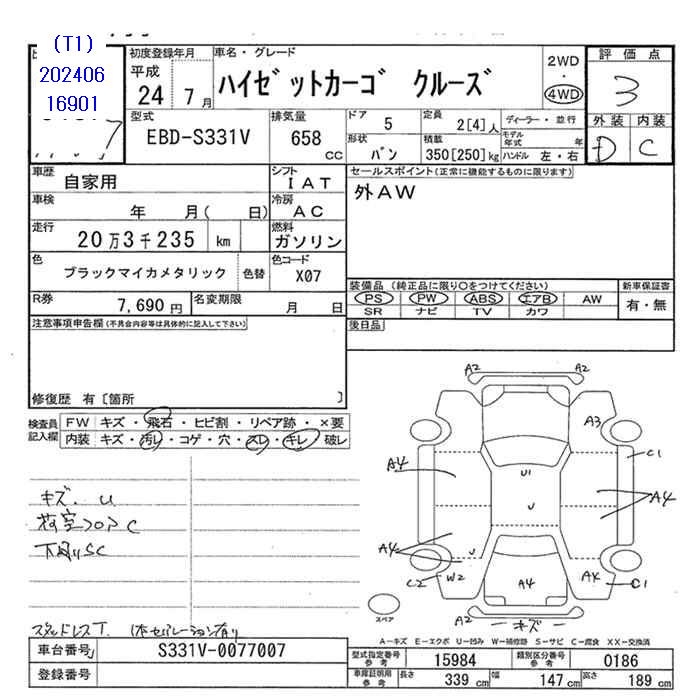 (T1)
202406
16901
初度登録年月
平成
24 7月
車名・グレード
ハイゼットカーゴ クルーズ
2WD
・
4WD
評価点
3
外装 内装
D C
型式
EBD-S331V
排気量
658
CC
ドア 5
形状 バン
定員 2[4]人
積載 350[250]kg
ディーラー・並行
モデル年式 年
ハンドル 左・右
車歴
自家用
シフト
IAT
車検
年 月( 日)
冷房
AC
走行
20万3千235 km
燃料
ガソリン
色
ブラックマイカメタリック
色替
色コード
X07
R券
7,690円
名変期限
月 日
セールスポイント(正常に機能するものに限ります)
外AW
装備品(純正品に限り○をつけてください)
PS PW ABS エアB AW
SR ナビ TV カワ
新車保証書
有・無
後日品
注意事項申告欄(不具合内容等は具体的に記入して下さい)
修復歴 有〔箇所 〕
検査員
記入欄
FW キズ・飛石・ヒビ割・リペア跡・×要
内装 キズ・汚レ・コゲ・穴・スレ・キレ・破レ
キズ、U
荷室フロアC
下廻りSC
スタッドレスT.
A2 A2
A3
C1
A4
U1
U
A4
A4
U
C2 W2
A4
A4
C1
A2 キズ A2
スペア
A-キズ E-エクボ U-凹み W-補修跡 S-サビ C-腐食 XX-交換済
車台番号
S331V-0077007
登録番号
型式指定番号
参考
15984
類別区分番号
参考
0186
車庫証明用
参考
長さ 339cm 幅 147cm 高さ 189cm